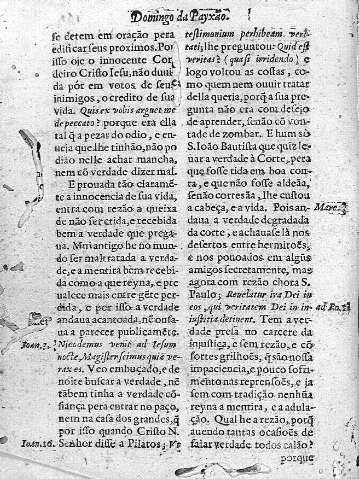 Domingo da Payxão.
se detem em oração pera
edificar seus proximos. Por
isso oje o innocente Cor
deiro Cristo Iesu, não duui
da pór em votos de seus
inimigos, o credito de sua
vida. Quis ex vobis arguet me
de peccato? porque era ella
tal q̃ a pezar do odio, e en-
ueja que lhe tinhão, não po
dião nelle achar mancha,
nem cō verdade dizer mal.
E prouada tão claramẽ-
te a innocencia de sua vida,
entra com rezão a queixa
de não ser crida, e recebida
bem a verdade que prega-
ua. Mui antigo he no mun-
do ser maltratada a verda-
de, e a mentira bem recebi
da como a que reyna, e pre
ualece mais entre gẽte per-
dida, e por isso a verdade
andaua acantoada, nē ousa-
ua a parecer publicamẽte.
Ioan. 3. Nicodemus venit ad Iesum
nocte, Magister scimus quia ve-
rax es. Veo embuçado, e de
noite buscar a verdade, nē
tābem tinha a verdade cō-
fiança pera entrar no paço,
nem na casa dos grandes, q̃
por isso quando Cristo N.
Ioan. 16. Senhor disse a Pilatos; Vt
testimonium perhibeam veri-
tati; lhe preguntou: Quid est
veritas? (quasi irridendo) e
logo voltou as costas, co-
mo quem nem ouuir tratar
della queria, porq̃ a sua pre
gunta não era com desejo
de aprender, senão cō von-
tade de zombar. E hum só
S. Ioão Bautista que quiz le-
uar a verdade à Corte, pera
que fosse tida em boa con-
ta, e que não fosse aldeãa,
senão cortesãa, lhe custou
a cabeça, e a vida. Pois an- Marc.
daua a verdade degradada
da corte, e achauase là nos
desertos entre hermitões,
e nos pouoados em algūs
amigos secretamente, mas
agora com rezão chora S.
Paulo; Reuelatur ira Dei in
eos, qui veritatem Dei in in- ad Ro.
iustitia detinent. Tem a ver-
dade prela no carcere da
injustiça, e sem rezão, e co
fortes grilhões, q̃ são nossa
impaciencia, e pouco sofri-
mento nas reprensões, e ja
sem contradição nenhūa
reyna a mentira, e a adula-
ção. Qual he a rezão, porq̃
auendo tantas ocasioēs de
falar verdade todos calão?
porque